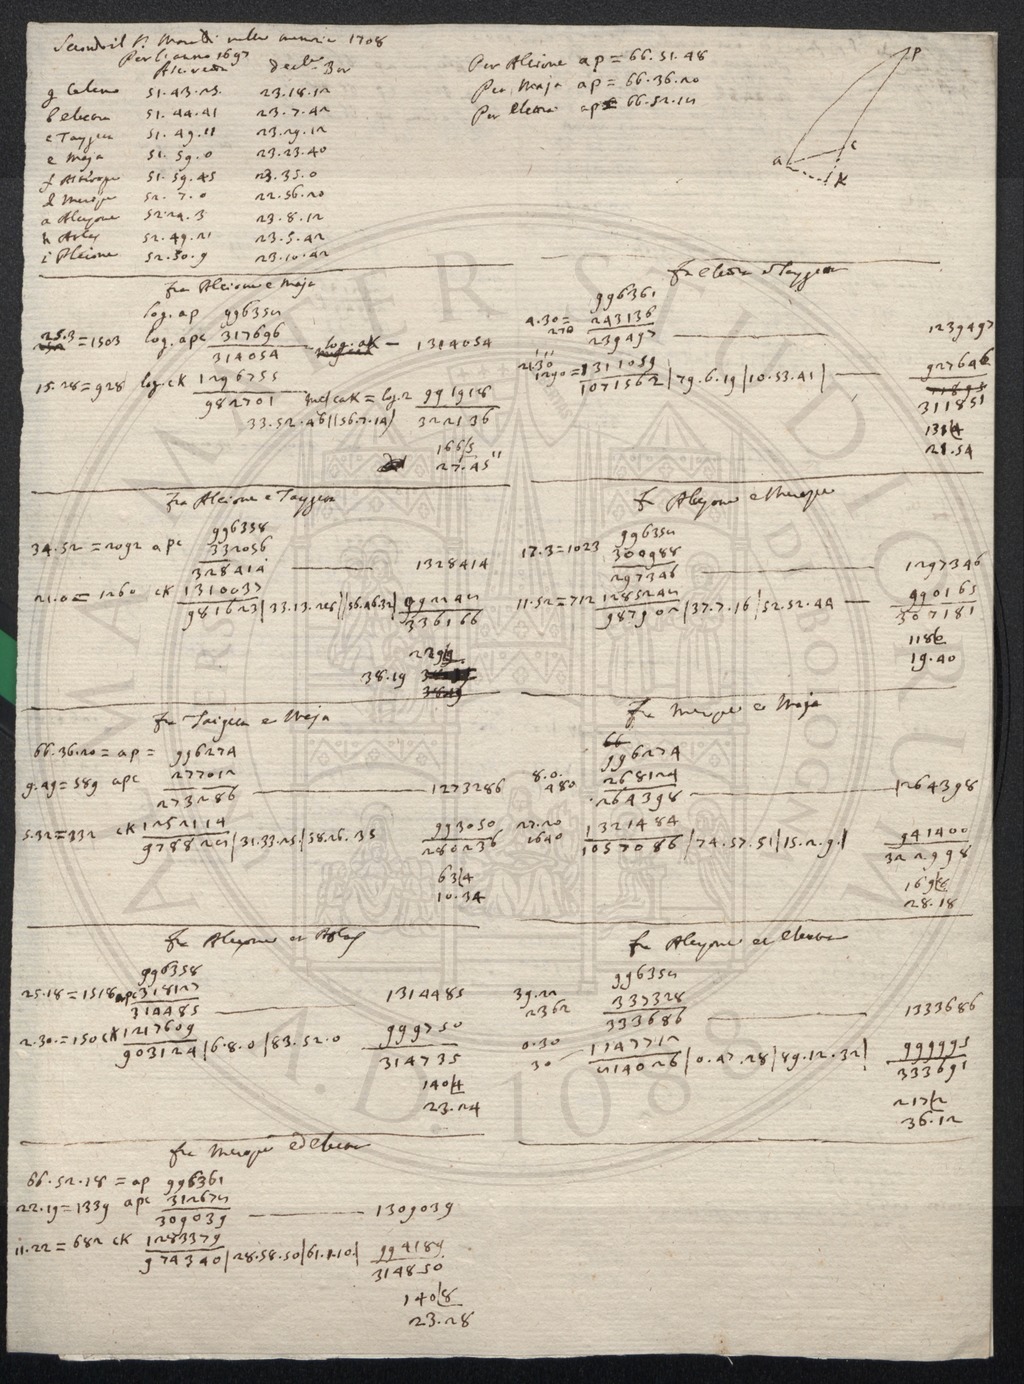 Secondo il P. Maraldi nelle memorie 1708
Per l'anno 1697
Asc. retta Decl. Bor
g Celeno 51.43.25. 23.18.12
b electra 51.44.41 23.7.42
c Taygeta 51.49.11 23.29.12
e Maja 51.59.0 23.23.40
f Asterope 51.59.45 23.35.0
d Merope 52.7.0 22.56.20
a Alcyone 52.24.3 23.8.12
h Atlas 52.49.21 23.5.42
i Pleione 52.50.9 23.10.42
Per Alcione ap = 66.51.48
Per Maja ap = 66.36.20
Per Electra ap = 66.52.18
P
a c
K
fra Alcione e Maja
log. ap 996354
25.3 = 1503 log. apc 317696
314054 log. aK — 1314054
15.28 = 928 log. cK 1296755
982701 caK = log. 2 991918
33.52.46 | (56.7.14) 322136
166/5
27.45"
fra Electra e Taygeta
996361
4.30 = 270 243136
239497 — 1239497
21.30" 1290 = 1311059 927646
1071562 | 79.6.19 | 10.53.41 | —
311851
131/4
21.54
fra Alcione e Taygeta
996358
34.52 = 2092 apc 332056
328414 — 1328414
21.0 = 1260 cK 1310037
981623 | 33.13.28 | 56.46.32 | 992244
336166
229/9
38.19
fr Alcyone e Merope
996354
17.3 = 1023 300988
297346 — 1297346
11.52 = 712 1285244 990165
987902 | 37.7.16 | 52.52.44 — 307181
118/0
19.40
fra Taigeta e Maja
66.36.20 = ap = 996274
9.49 = 589 apc 277012
273286 — 1273286
5.32 = 332 cK 1252114 993050
978825 | 31.33.25 | 58.26.35 280236
63/4
10.34
fra Merope e Maja
66
996274
8.0. 480 268124
264398 — 1264398
27.20 1640 1321484 941400
1057086 | 74.57.51 | 15.2.9. | 322998
169/8
28.18
fra Alcyone et Atlas
996358
25.18 = 1518 apc 318127
314485 — 1314485
2.30. = 150 cK 1217609 999750
903124 | 6.8.0 | 83.52.0 314735
140/4
23.24
fra Alcyone et Electra
996354
39.22 2362 337328
333686 — 1333686
0.30 30 1147712 999995
214026 | 0.47.28 | 89.12.32 | 333691
217/2
36.12
fra Merope ed Electra
66.52.18 = ap 996361
22.19 = 1339 apc 312674
309039 — 1309039
11.22 = 682 cK 1283379 994189
974340 | 28.58.50 | 61.1.10. | 314850
140/8
23.28
ALMA MATER STUDIORUM
BONONIA DOCET
A.D. 1088